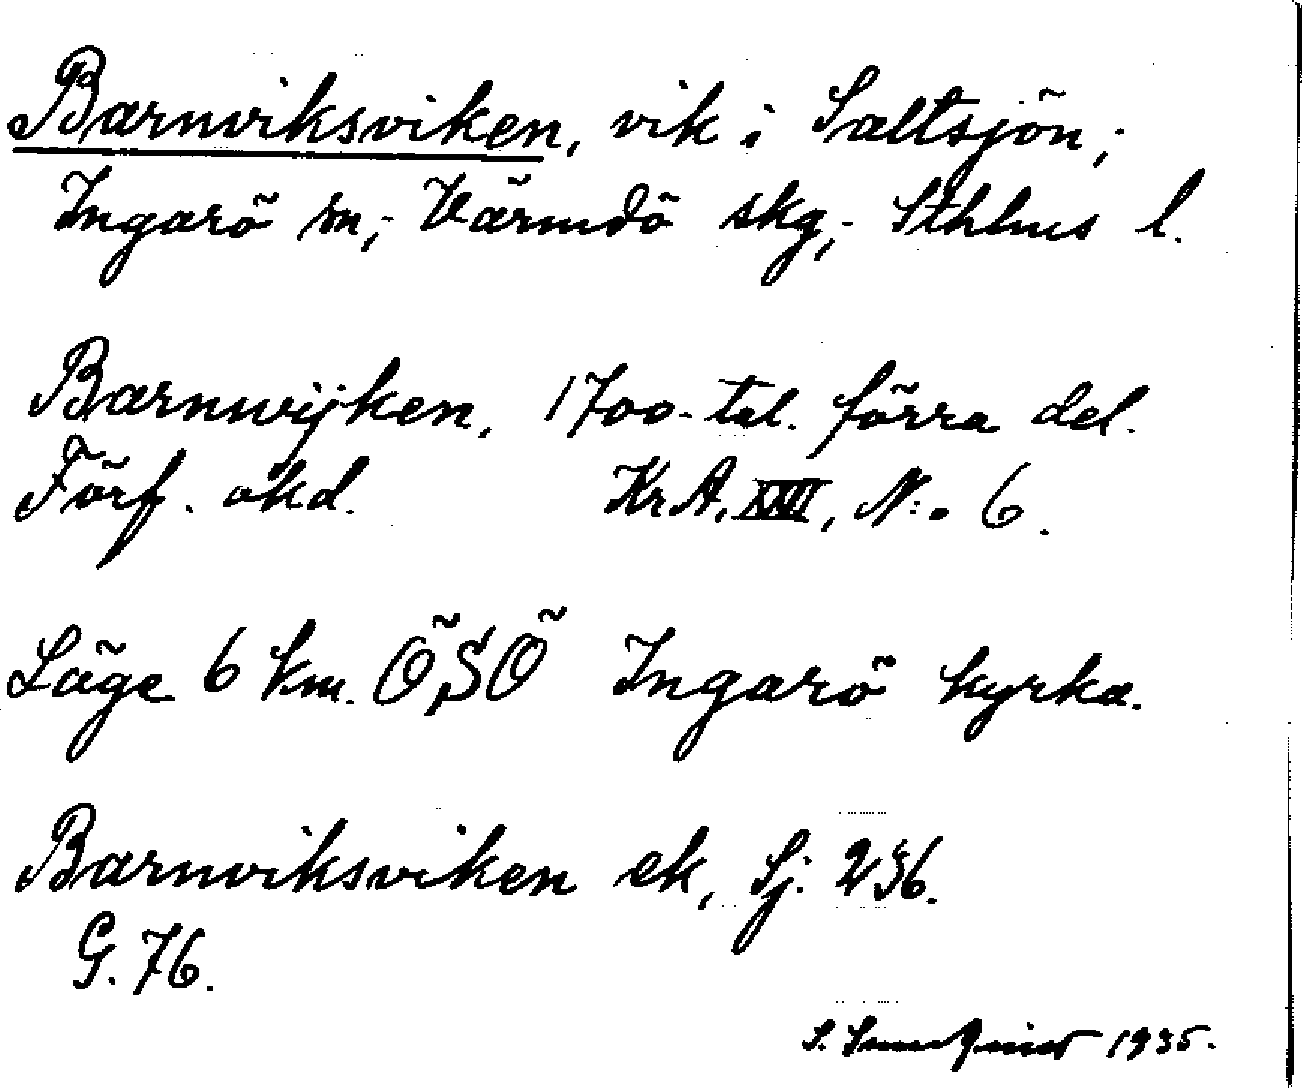 Barnviksviken, vik i Saltsjön,;
Ingarö sn,; Värmdö skg,; Sthlms l.
Barnwijken, 1700-tal. förra del.
Förf. okd. KrA. XXVI, N:o 6.
Läge 6 km. ÖSÖ Ingarö kyrka.
Barnviksviken ek, Sj. 236.
G. 76.
S. 1935.